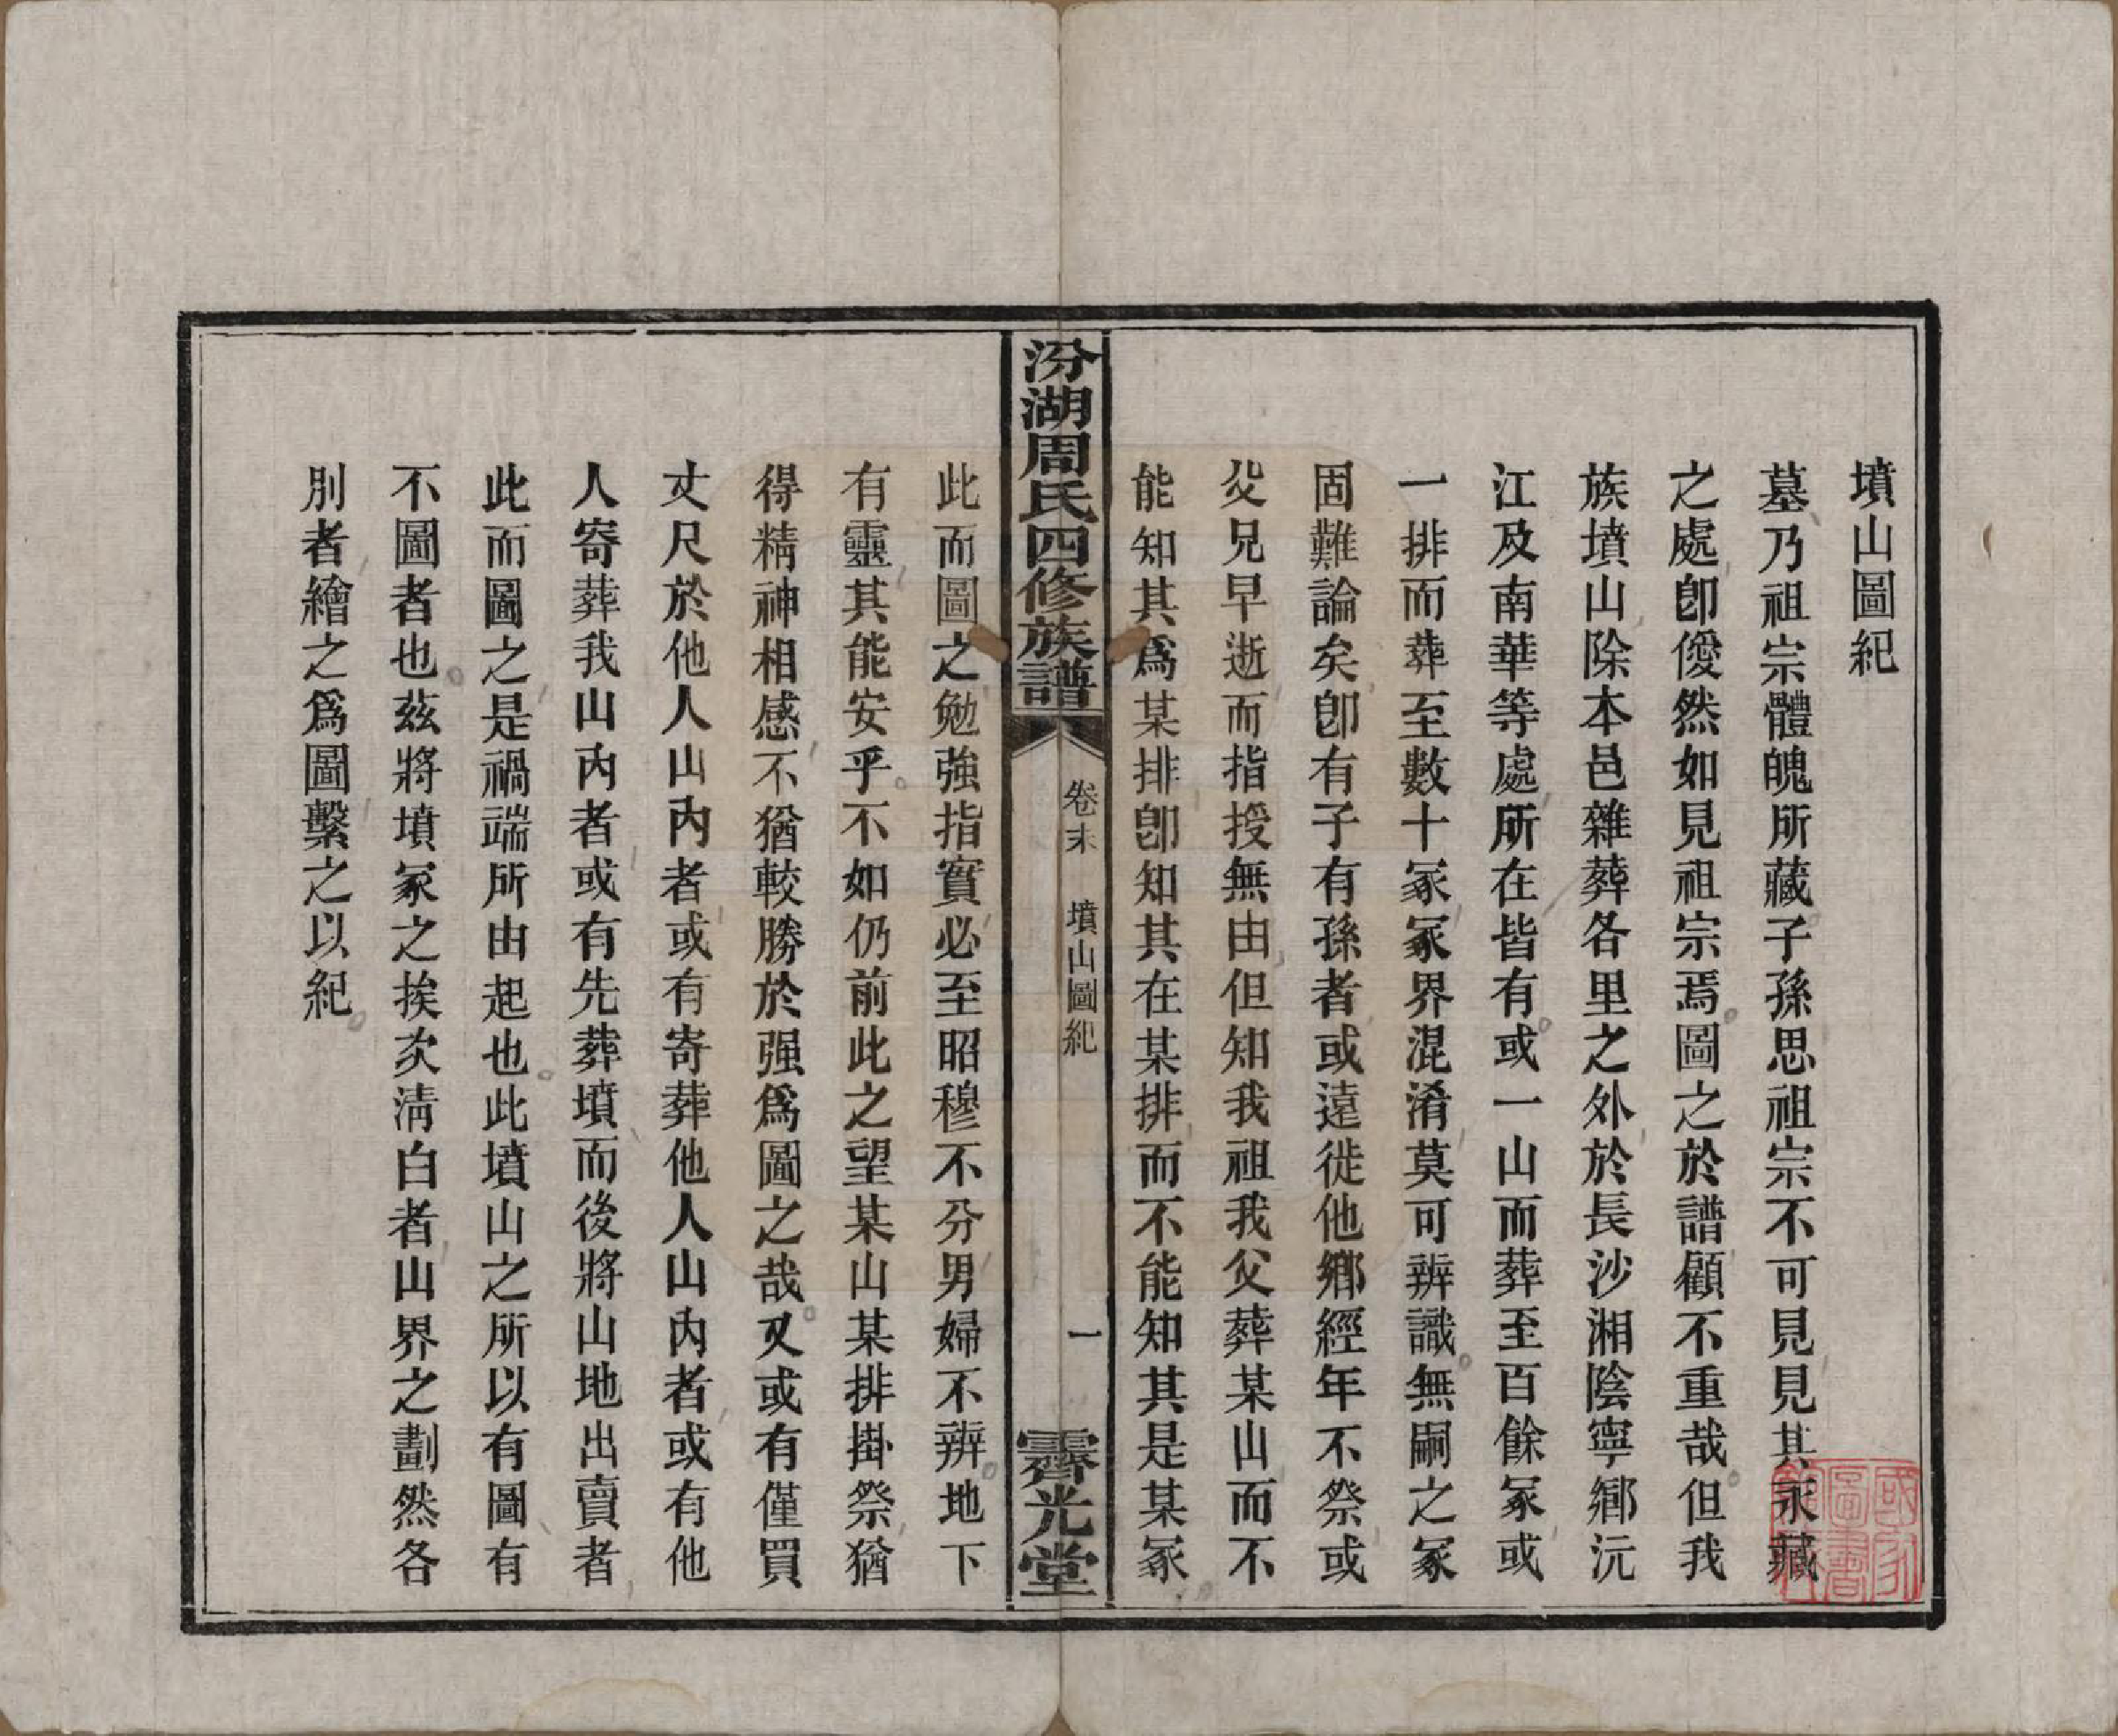 墳山圖紀
墓乃祖宗體魄所藏子孫思祖宗不可見見其永藏
之處卽僾然如見祖宗焉圖之於譜顧不重哉但我
族墳山除本邑雜葬各里之外於長沙湘陰寧鄉沅
江及南華等處所在皆有或一山而葬至百餘冢或
一排而葬至數十冢冢界混淆莫可辨識無嗣之冢
固難論矣卽有子有孫者或遠徙他鄉經年不祭或
父兄早逝而指授無由但知我祖我父葬某山而不
能知其爲某排卽知其在某排而不能知其是某冢
汾湖周氏四修族譜
卷末 墳山圖紀
一
霽光堂
此而圖之勉強指實必至昭穆不分男婦不辨地下
有靈其能安乎不如仍前此之望某山某排掛祭猶
得精神相感不猶較勝於强爲圖之哉又或有僅買
丈尺於他人山內者或有寄葬他人山內者或有他
人寄葬我山內者或有先葬墳而後將山地出賣者
此而圖之是禍端所由起也此墳山之所以有圖有
不圖者也茲將墳冢之挨次清白者山界之劃然各
別者繪之爲圖繫之以紀
國家圖書館藏